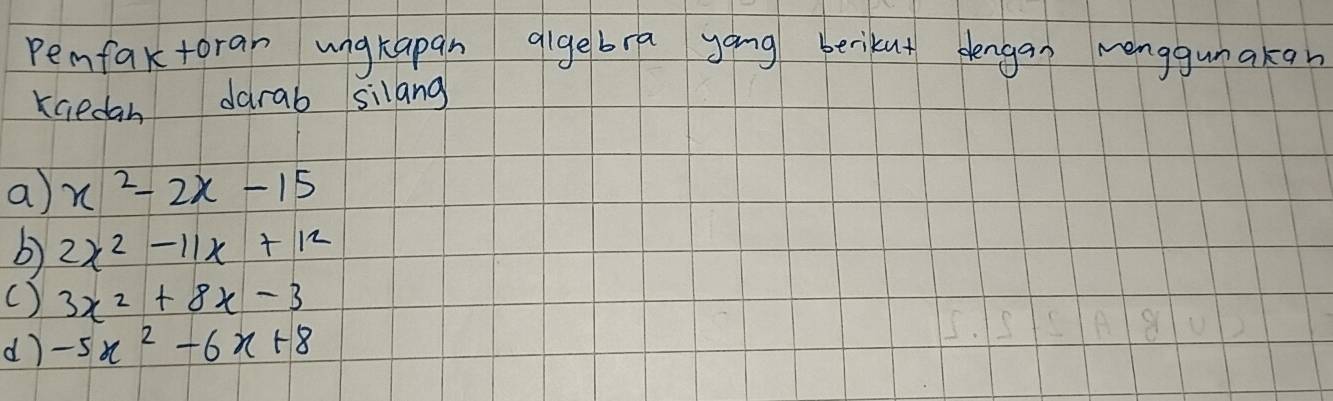 Pemfaktoran ungkapan algebra yang berikut dengan menggunakan
kaedah darab silang
a) x² - 2x - 15
b) 2x² - 11x + 12
c) 3x² + 8x - 3
d) -5x² - 6x + 8